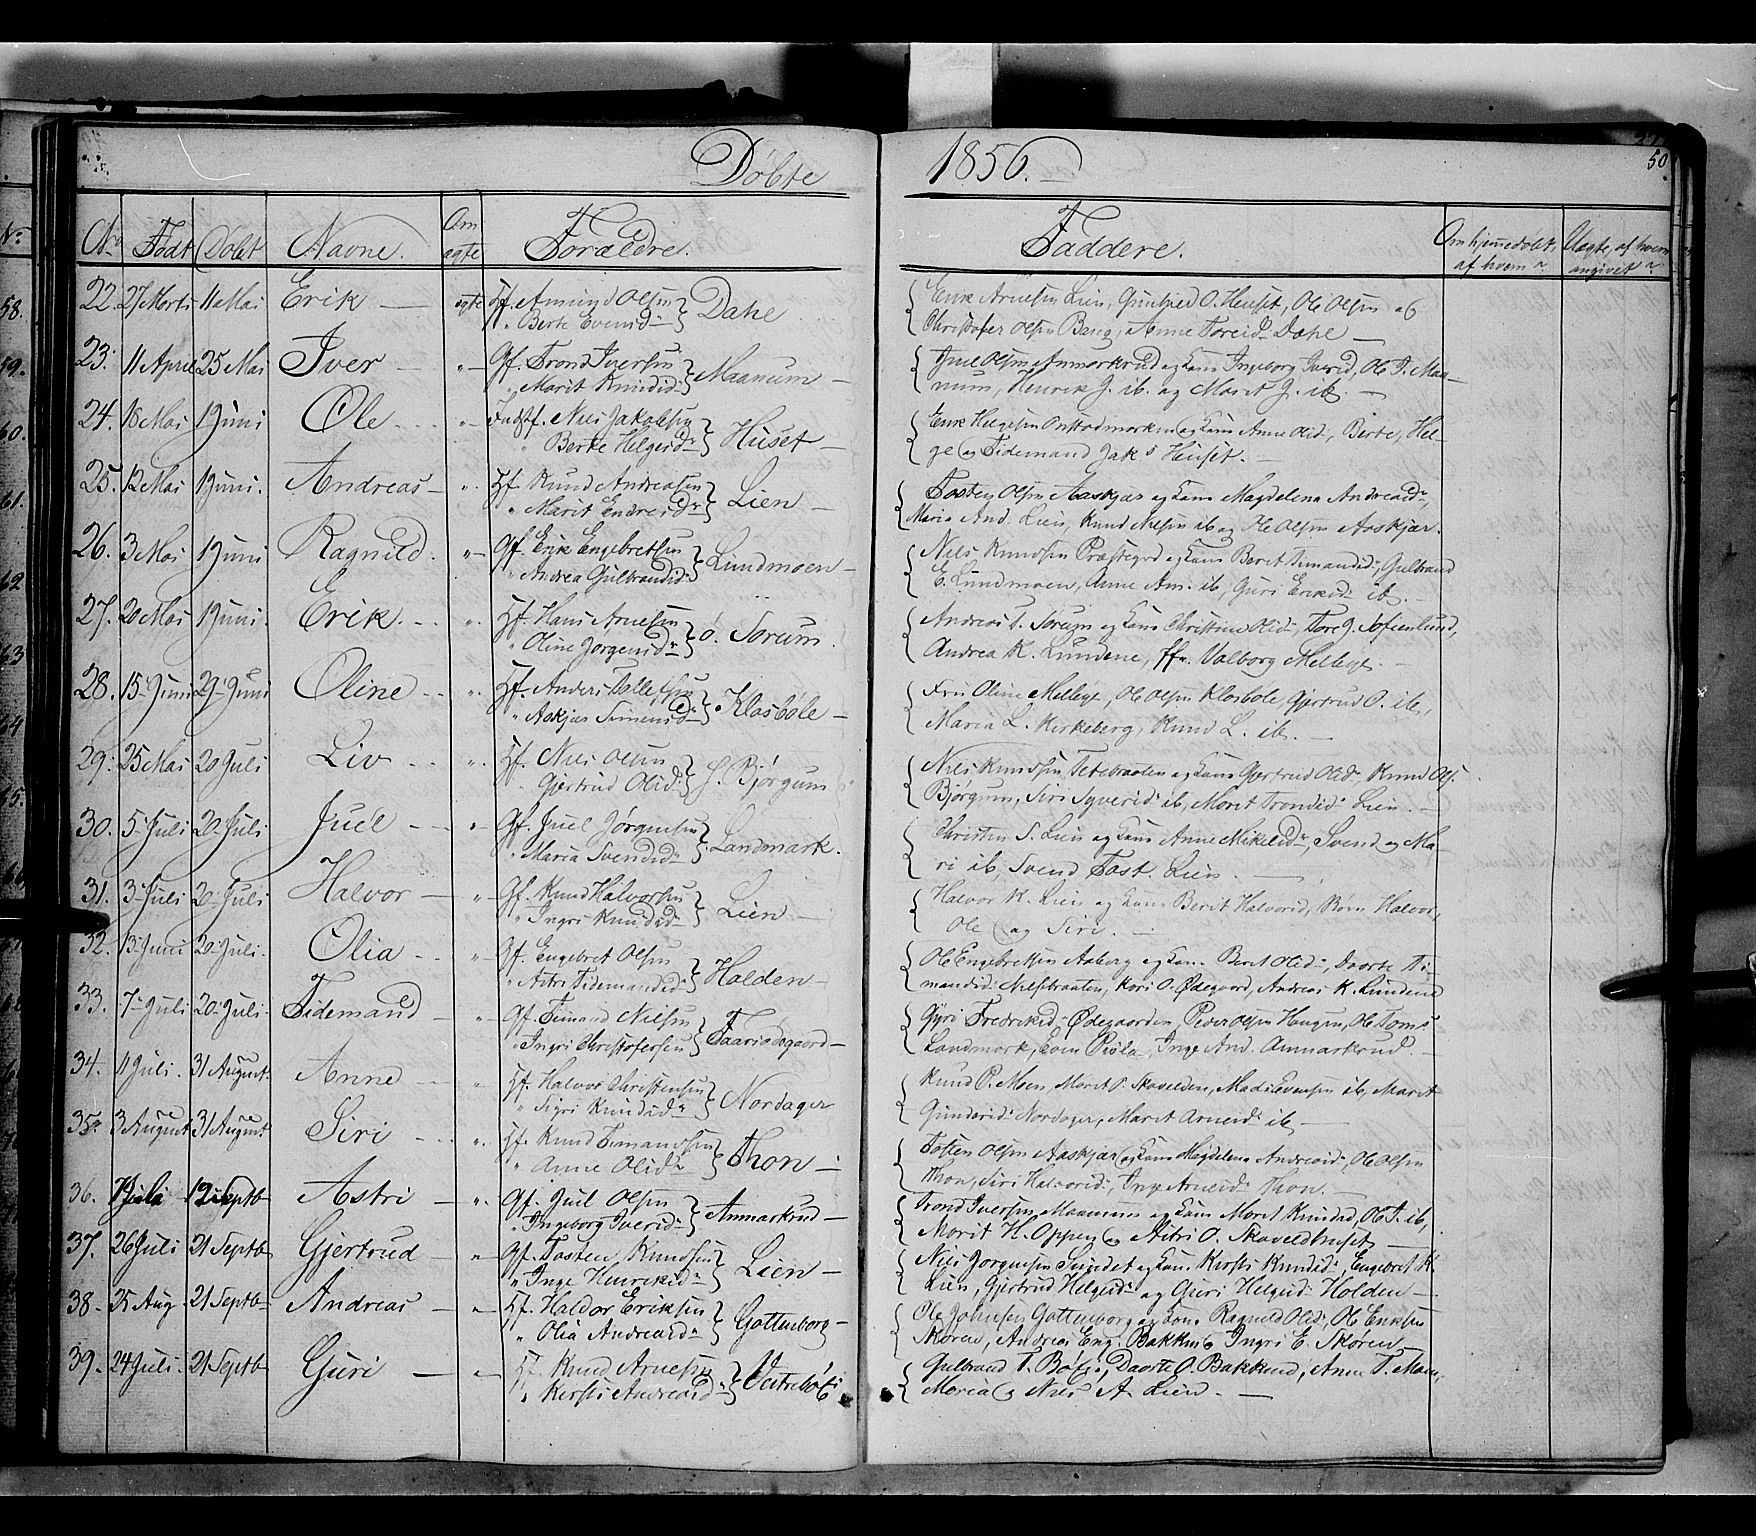 Døbte
1856.
50.
No Født Døbt Navne. Om ægte Forældre. Faddere. Om hjemmedøbt, af hvem Uægte, af hvem angivet
22. 27 Marts 11 Mai Erik — ægte Hf. Amund Olsen
" Berte Evensd. } Dahe
Erik Arnesen Lien, O. Huset, Ole Olsen og
Christofer Olsen Bang, Anne Toresd. Dahe —
23. 11 April 25 Mai Iver — " Gf. Trond Iversen
" Marit Knudsd. } Maanum —
Juel Olsen Anmarkrud og Kone Ingeborg Iversd., Ole T. Maa-
num, Henrik J. ib. og Marit J. ib. —
24. 18 Mai 1 Juni Ole " Indst. Nils Jakobsen
" Berte Helgesd. } Huset —
Erik Helgesen og Kone Anne Olsd., Berte, Hel-
ge og Tidemand Jaks Huset. —
25. 12 Mai 1 Juni. Andreas — " Hf. Knud Andreasen
" Marit Endresd. } Lien —
Tosten Olsen Aaskjær og Kone Magdelena Andreasd.,
Maria And. Lien, Knud Nilsen ib og Ole Olsen Aaskjær.
26. 3 Mai 1 Juni Ragnild. " Gf. Erik Engebretsen
" Andrea Gulbrandsd. } Lundmoen —
Nils Knudsen Præstegrd og Kone Beret Timandsd., Gulbrand
E. Lundmoen, Anne Am. ib, Guri Eriksd. ib. —
27. 20 Mai 1 Juni. Erik. " Hf. Hans Arnesen
" Oline Jørgensd. } ø. Sørum.
Andreas T. Sørum og Kone Christine Olsd., Tore J. Sofienlund,
Andrea K. Lundene, Valborg Mellbye. —
28. 15 Juni 29 Juni Oline " Hf. Anders Tollefsen
" Askjær Simensd. } Klosbøle —
Frü Oline Mellbye, Ole Olsen Klosbøle, Gjertrud O. ib,
Maria L. Kirkeberg, Knud L. ib. —
29. 25 Mai 20 Juli Liv " Hf. Nils Olsen
" Gjertrud Olsd. } Bjørgum
Nils Knudsen og Kone Gjertrud Olsd., Knud Ols.
Bjørgum, Siri Syversd. ib, Marit Trondsd. Lien. —
30. 5 Juli 20 Juli Juel " Gf. Juel Jørgensen
" Maria Svendsd. } Landmark.
Christen S. Lien og Kone Anne Mikelsd., Svend og Ma-
ri ib, Svend Tost. Lien. —
31. 3 Juli 20 Juli Halvor — " Gf. Knud Halvorsen
" Ingri Knudsd. } Lien —
Halvor K. Lien og Kone Berit Halvorsd., Børn Halvor,
Ole og Siri. —
32. 13 Juni 20 Juli. Olia " Gf. Engebret Olsen
" Astri Tidemandsd. } Holden —
Ole Engebretsen Aaberg og Kone Beret Olsd., Daarte Ti-
mandsd. Nilsbraaten, Kari O. Ødegaard, Andreas K. Lundene
33. 7 Juli 20 Juli. Tidemand — " Gf. Timand Nilsen
" Ingri Christofersen } —
Gyri Fredriksd. Ødegaarden, Peder Olsen Haugen, Ole Toms
Landmark, Even Piøla, Inge And. Anmarkrud. —
34. 11 Juli. 31 August Anne " Hf. Halvor Christensen
" Sigri Knudsd. } Nordager
Knud P. Moen, Marit P. Skavelden, Mads Evensen ib, Marit
Gundersd. Nordager, Maret Arnesd. ib —
35. 3 August 31 August Siri " Hf. Knud Timandsen
" Anne Olsd. } Thon —
Tosten Olsen Aaskjær og Kone Magdelena Andreasd., Ole Olsen
Thon, Siri Halvorsd., Inge Arnesd. Thon. —
36. Juli 12 Septb Astri — " Gf. Juel Olsen
" Ingeborg Iversd. } Anmarkrud —
Trond Iversen Maanum og Kone Marit Knudsd, Ole T. ib,
Marit H. Oppen og Astri O. Skaveldhuset —
37. 26 Juli 21 Septb Gjertrud — " Gf. Tosten Knudsen
" Inge Henriksd. } Lien —
Nils Jørgensen og Kone Kirsti Knudsd., Engebret K.
Lien, Gjertrud Helgesd. og Guri Helgesd. Holden —
38 25 Aug. 21 Septb Andreas — " Hf. Haldor Eriksen
" Olia Andreasd. } Gottenborg —
Ole Johnsen Gottenborg og Kone Ragnild Olsd., Ole Eriksen
Skøren, Andreas Eng. Bakken og Ingri E. Skøren —
39. 24 Juli. 21 Septb Guri — " Hf. Knud Arnesen
" Kirsti Andreasd. }
Gulbrand T. Bøti, Daarte O. Bakkend, Anne T. Moen,
Maria og Nils A. Lien. —
No
58.
59.
60.
61.
62
63
64
65.